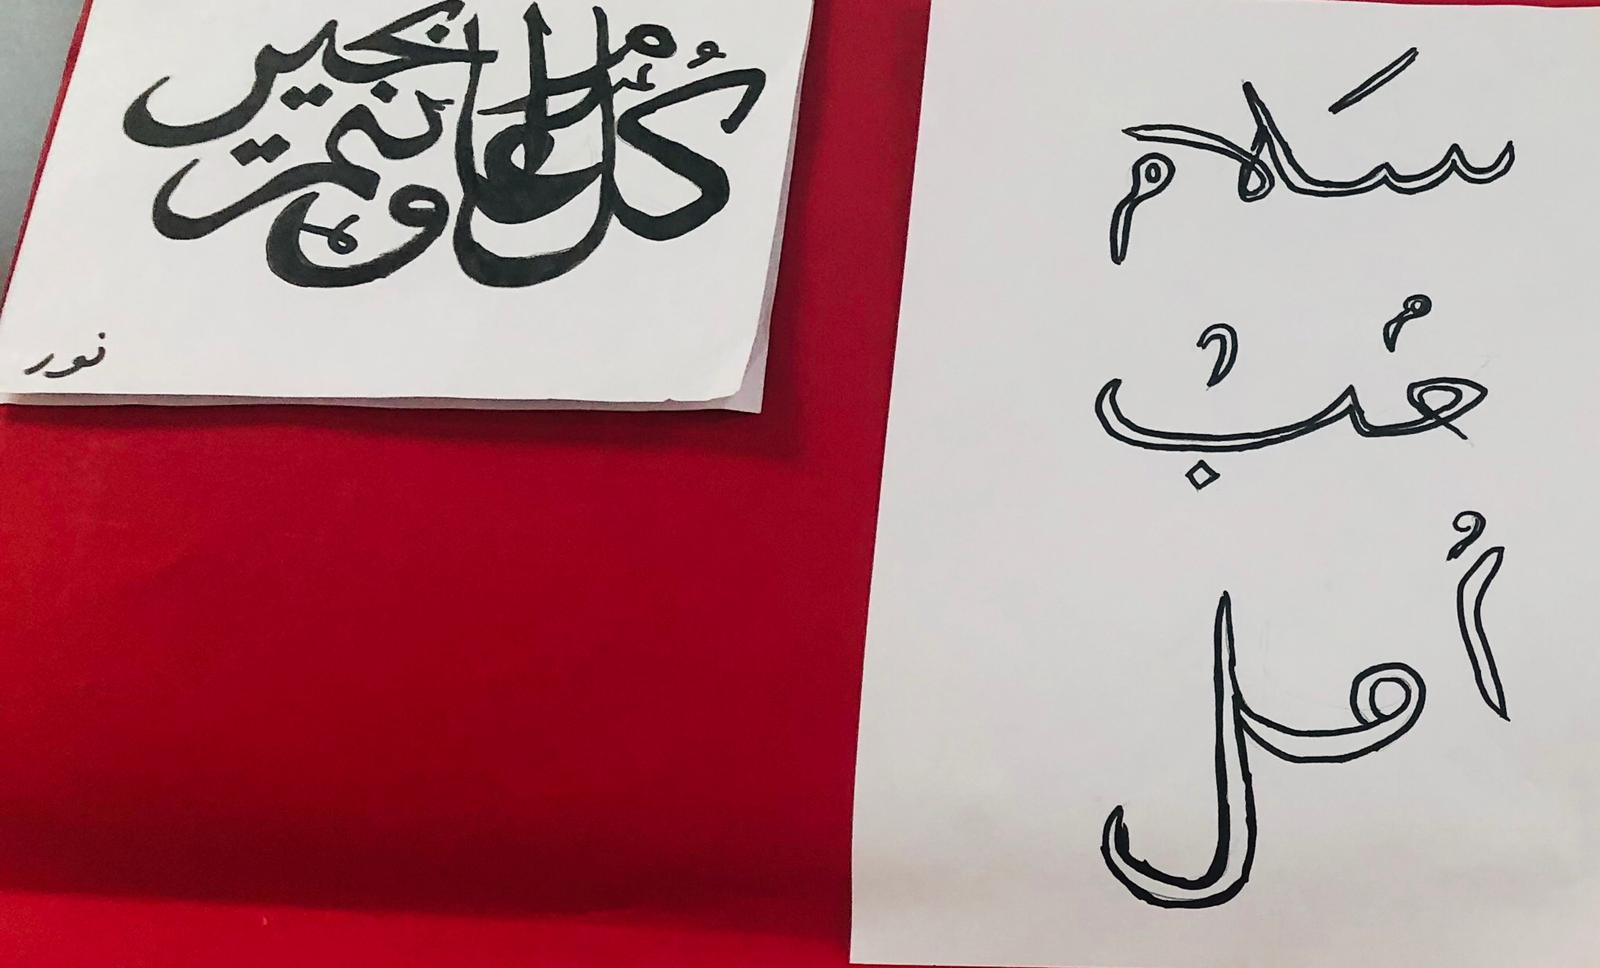 سَلام
حُبّ
أُمل
كُل عام وأنتم بخير
نور